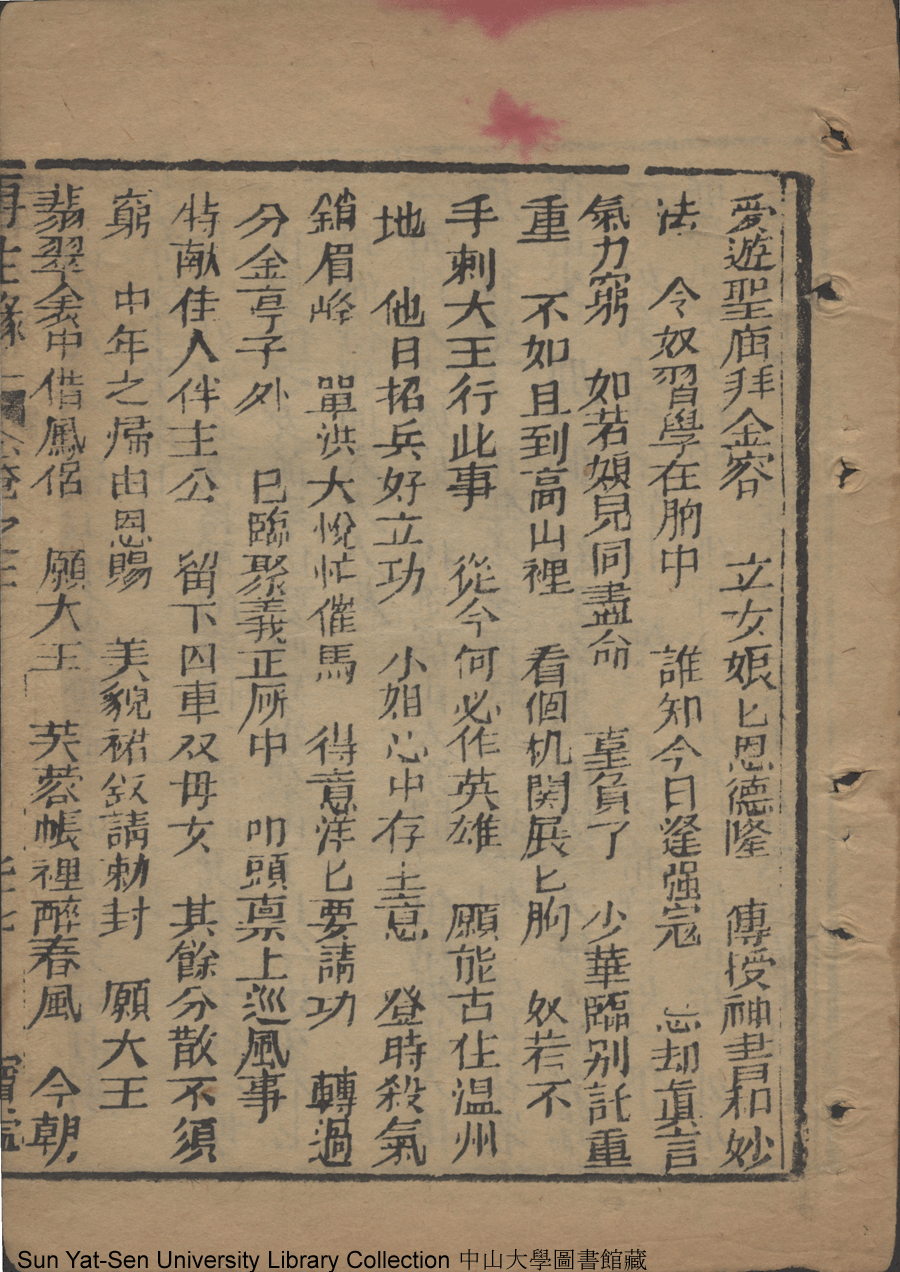 愛遊聖庙拜金容　立女娘匕恩德隆　傳授神書和妙
法　令奴習學在胸中　誰知今日逢强寇　忘却真言
氣力窮　如若嬢兒同盡命　辜負了　少華臨别託重
重　不如且到高山裡　看個机関展匕胸　奴若不
手刺大王行此事　從今何必作英雄　願能古住温州
地　他日招兵好立功　小姐心中存主意　登時殺氣
鎖眉峰　單洪大悅忙催馬　得意洋匕要請功　轉過
分金亭子外　已臨聚義正所中　叩頭禀上巡風事
特献佳人伴主公　留下四車双母女　其餘分散不須
窮　中年之帰由恩賜　美貌裙釵請勅封　願大王
翡翠衾中借鳳侶　願大王　芙蓉帳裡醉春風　今朝
再生緣
Sun Yat-Sen University Library Collection 中山大學圖書館藏